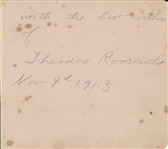 with the best wishes
of
Theodore Roosevelt
Nov 4th 1913